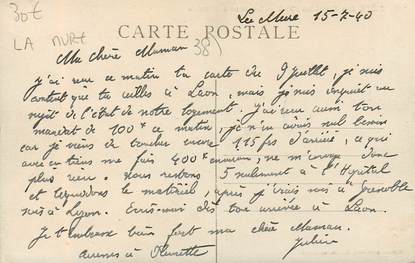 30€
LA MURE
38)
CARTE POSTALE
La Mure 15-7-40
Ma chère Maman
J'ai reçu ce matin ta carte du 9 juillet, je suis
content que tu ailles à Lyon, mais je suis inquiet au
sujet de l'état de notre logement. J'ai reçu aussi ton
mandat de 100f ce matin, je n'en avais nul besoin
car je viens de toucher encore 115 frs d'arriéré, ce qui
avec me fais 400f environ, ne m'envoye donc
plus rien. Nous restons 5 seulement à l'Hôpital
et le matériel, après je vais soit à Grenoble
soit à Lyon. Ecris-moi dès ton arrivée à Lyon.
Je t'embrasse bien fort ma chère Maman.
Julien